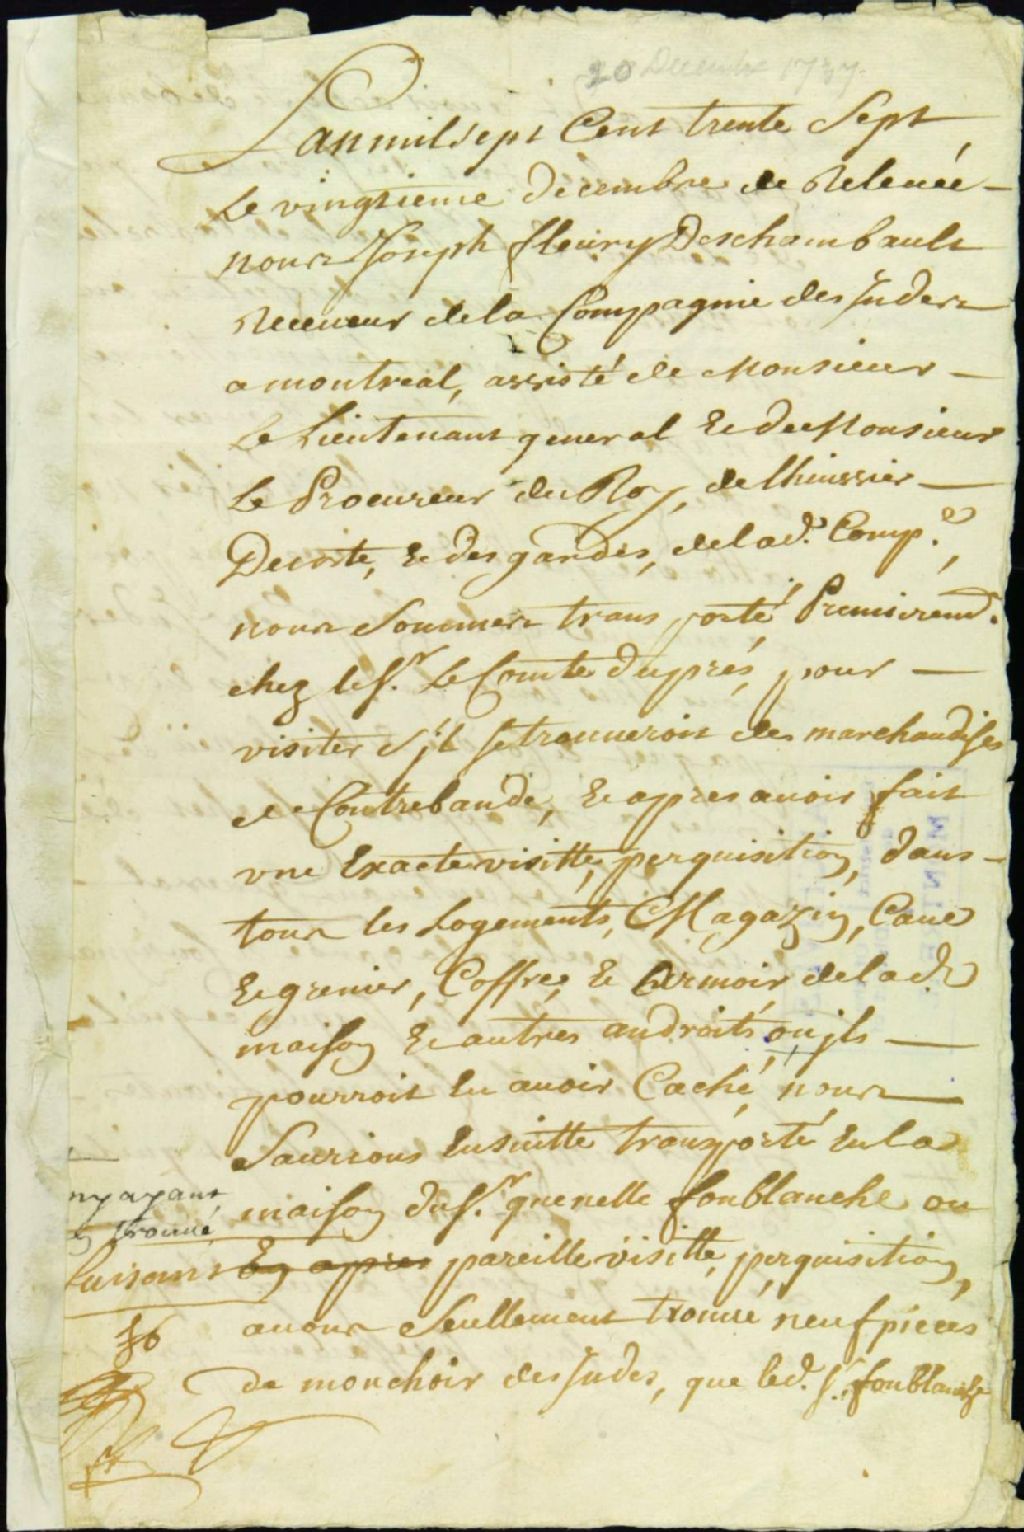 20 Decembre 1737.
Lan mil sept Cent trente Sept
Le vingtieme decembre de Relevée
nous Joseph fleury Deschambault
Receveur de la Compagnie des Indes
a montreal, assisté de Monsieur
Le Lieutenant general Et de Monsieur
Le Procureur du Roy, de lhuissier
Decoste, Et des gardes, de lad. Comp.e,
nous Sommes transporté Premieremt.
chez le Sr. Le Comte dupres, pour
visiter S'jl se trouueroit des marchandises
de Contrebande, Et apres auoir fait
vne Exacte visitte, perquisition, dans
tous les Logements, Magazin, Caue
Et grenier, Coffre, Et Armoir de lad.
maison Et autres androits, ou jls
pourroit En auoir Caché, nous
Saurions Ensuitte transporté En la
maison du Sr. quenelle fonblanche ou
ny ayant
trouué
faisant En apres pareille visitte, perquisition,
auons Seullement trouué neuf pieces
de mouchoir des Indes, que led. Sr. fonblanche